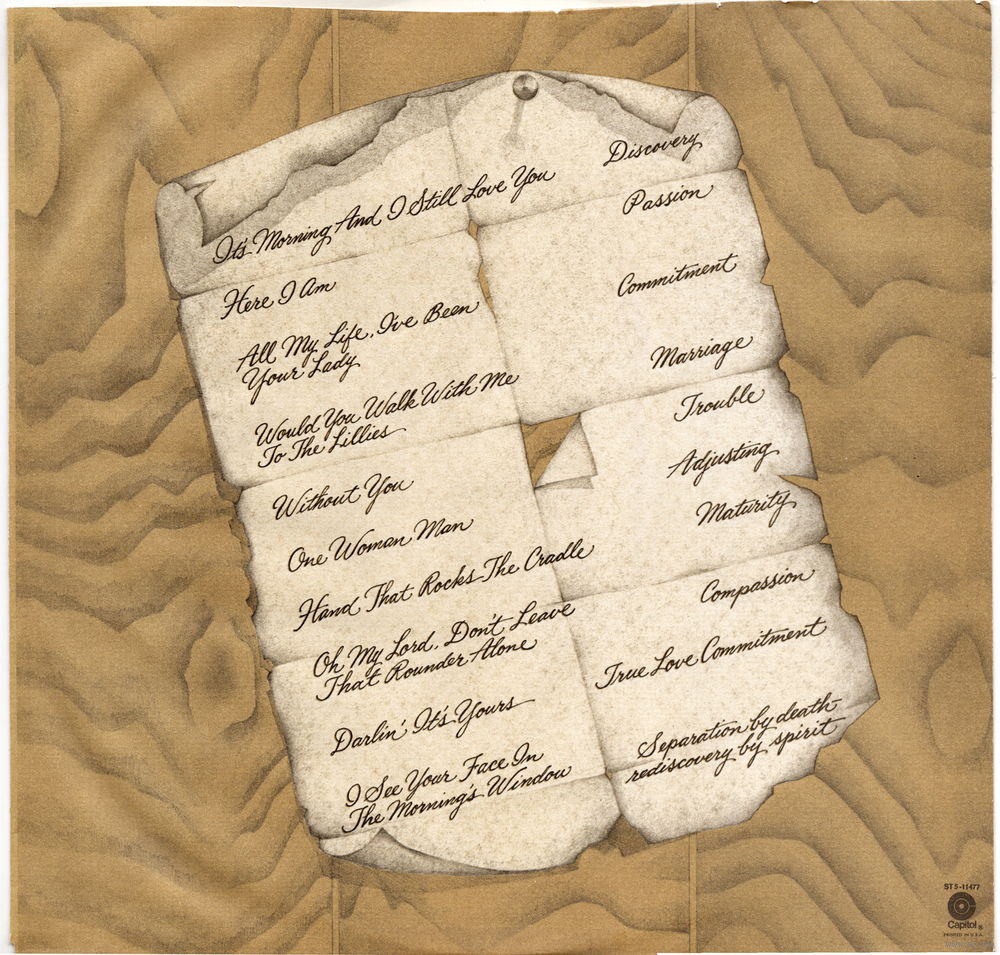 It's Morning And I Still Love You
Discovery
Here I Am
Passion
All My Life, I've Been
Your Lady
Commitment
Would You Walk With Me
To The Lillies
Marriage
Without You
Trouble
One Woman Man
Adjusting
Hand That Rocks The Cradle
Maturity
Oh My Lord, Don't Leave
That Rounder Alone
Compassion
Darlin' It's Yours
True Love Commitment
I See Your Face In
The Morning's Window
Separation by death-
rediscovery by spirit
ST 5-11477
Capitol®
PRINTED IN U.S.A.